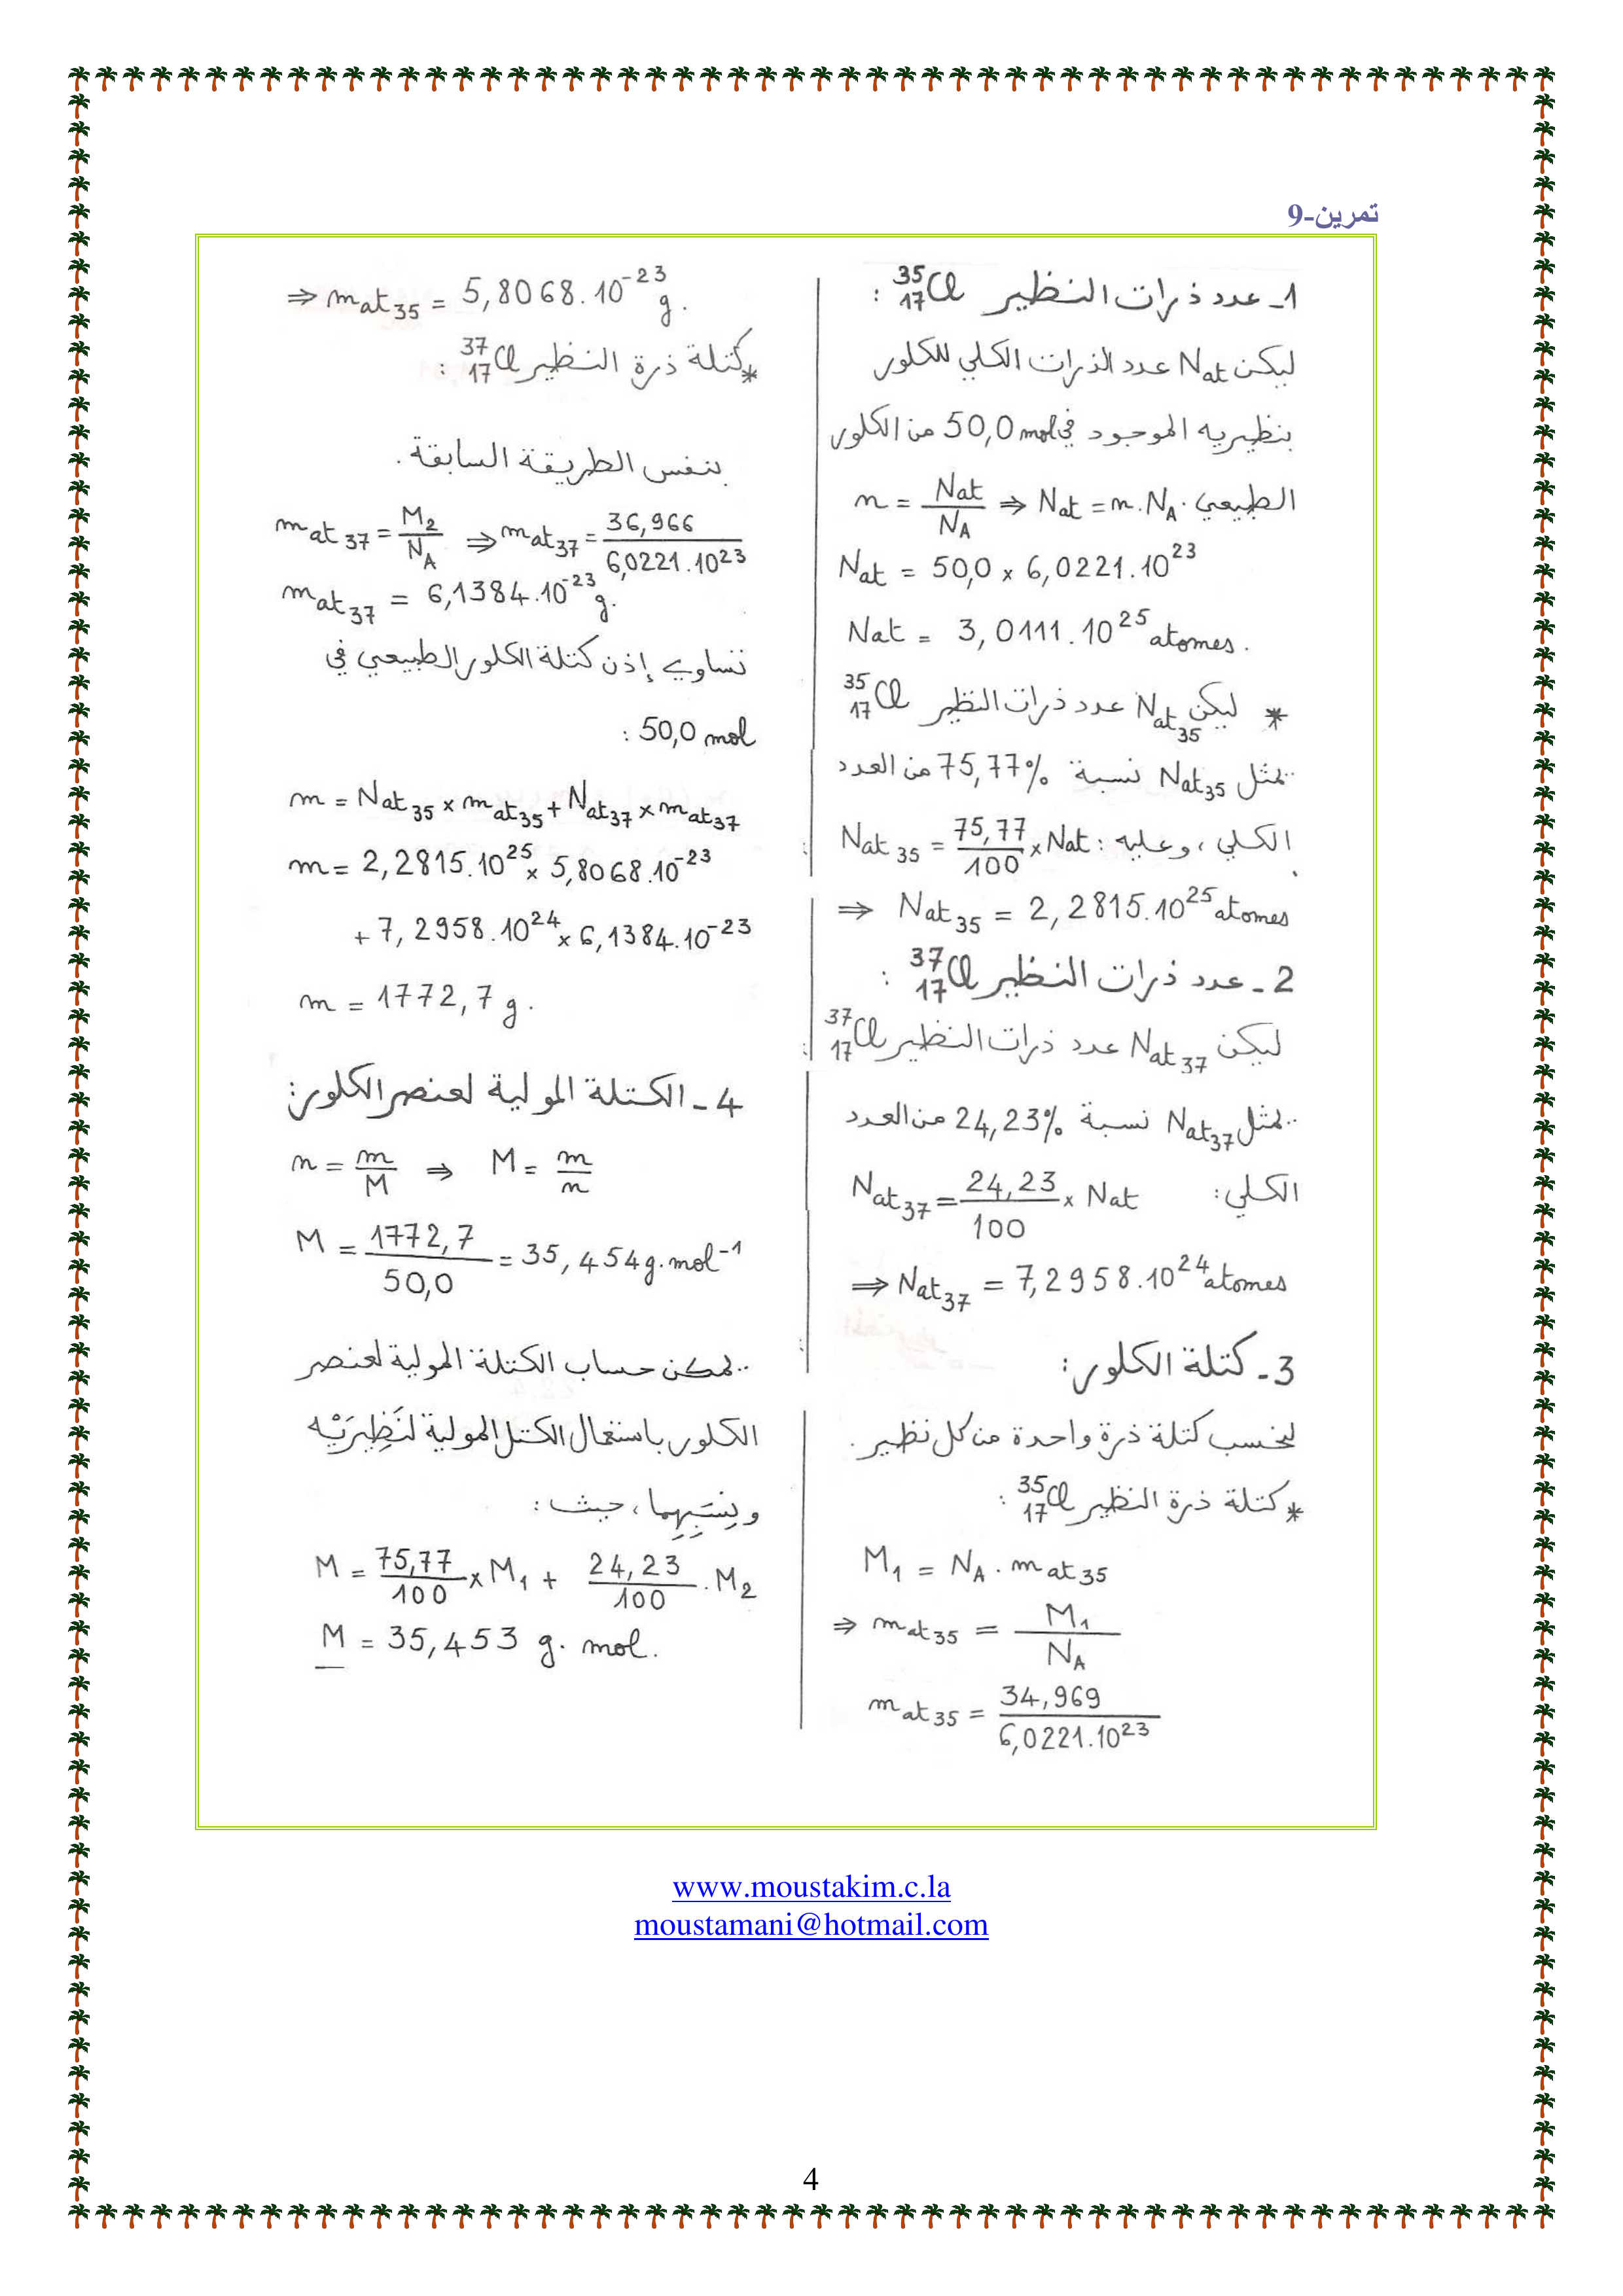 تمرين-9
1- عدد ذرات النظير ³⁵₁₇Cl :
ليكن Nat عدد الذرات الكلي للكلور
بنظيريه الموجود في 50,0 mol من الكلور
الطبيعي . n = Nat/NA ⇒ Nat = n.NA
Nat = 50,0 × 6,0221.10²³
Nat = 3,0111.10²⁵ atomes.
* ليكن Nat35 عدد ذرات النظير ³⁵₁₇Cl
يمثل Nat35 نسبة 75,77% من العدد
الكلي ، وعليه : Nat35 = 75,77/100 × Nat
⇒ Nat35 = 2,2815.10²⁵ atomes
2- عدد ذرات النظير ³⁷₁₇Cl :
ليكن Nat37 عدد ذرات النظير ³⁷₁₇Cl
يمثل Nat37 نسبة 24,23% من العدد
الكلي: Nat37 = 24,23/100 × Nat
⇒ Nat37 = 7,2958.10²⁴ atomes
3- كتلة الكلور:
لنحسب كتلة ذرة واحدة من كل نظير .
* كتلة ذرة النظير ³⁵₁₇Cl :
M₁ = NA . mat35
⇒ mat35 = M₁/NA
mat35 = 34,969/6,0221.10²³
⇒ mat35 = 5,8068.10⁻²³ g.
* كتلة ذرة النظير ³⁷₁₇Cl :
بنفس الطريقة السابقة .
mat37 = M₂/NA ⇒ mat37 = 36,966/6,0221.10²³
mat37 = 6,1384.10⁻²³ g.
تساوي إذن كتلة الكلور الطبيعي في
50,0 mol :
m = Nat35 × mat35 + Nat37 × mat37
m = 2,2815.10²⁵ × 5,8068.10⁻²³
+ 7,2958.10²⁴ × 6,1384.10⁻²³
m = 1772,7 g.
4- الكتلة المولية لعنصر الكلور:
n = m/M ⇒ M = m/n
M = 1772,7/50,0 = 35,454 g.mol⁻¹
يمكن حساب الكتلة المولية لعنصر
الكلور باستعمال الكتل المولية لنَظِيرَيْه
وبنِسَبِهِما ، حيث :
M = 75,77/100 × M₁ + 24,23/100 . M₂
M = 35,453 g. mol.
www.moustakim.c.la
moustamani@hotmail.com
4